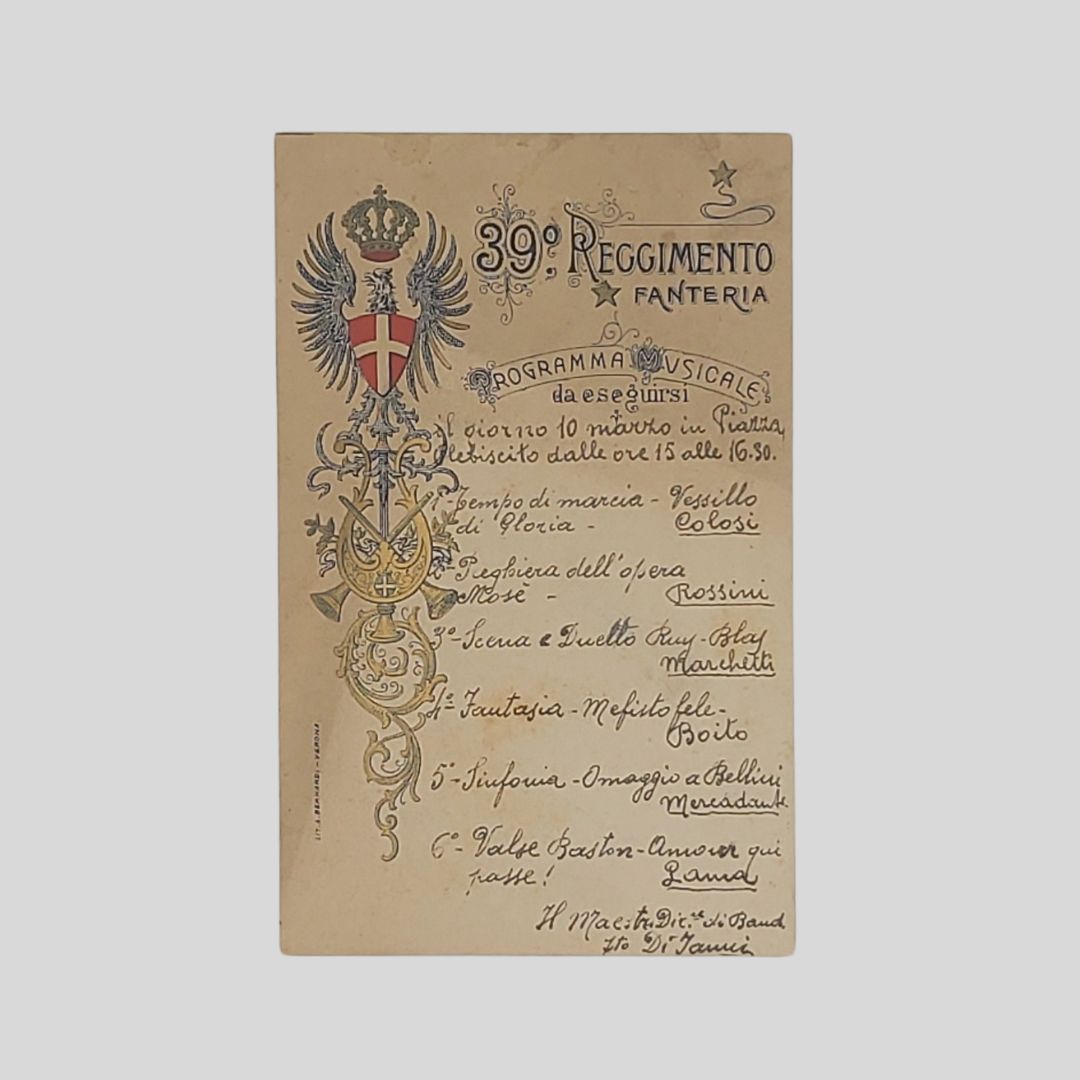 39º REGGIMENTO
FANTERIA
PROGRAMMA MUSICALE
da eseguirsi
il giorno 10 marzo in Piazza
Plebiscito dalle ore 15 alle 16.30.
1º- Tempo di marcia - Vessillo
di Gloria - Colosi
2º- Preghiera dell'opera
Mosè - Rossini
3º- Scena e Duetto Ruy-Blas
Marchetti
4º- Fantasia - Mefistofele -
Boito
5º- Sinfonia - Omaggio a Bellini
Mercadante
6º- Valse Baston - Amour qui
passe! Lama
Il Maestro Dir.re di Banda
fto Di Janni
LIT. A. BERNARDI - VERONA